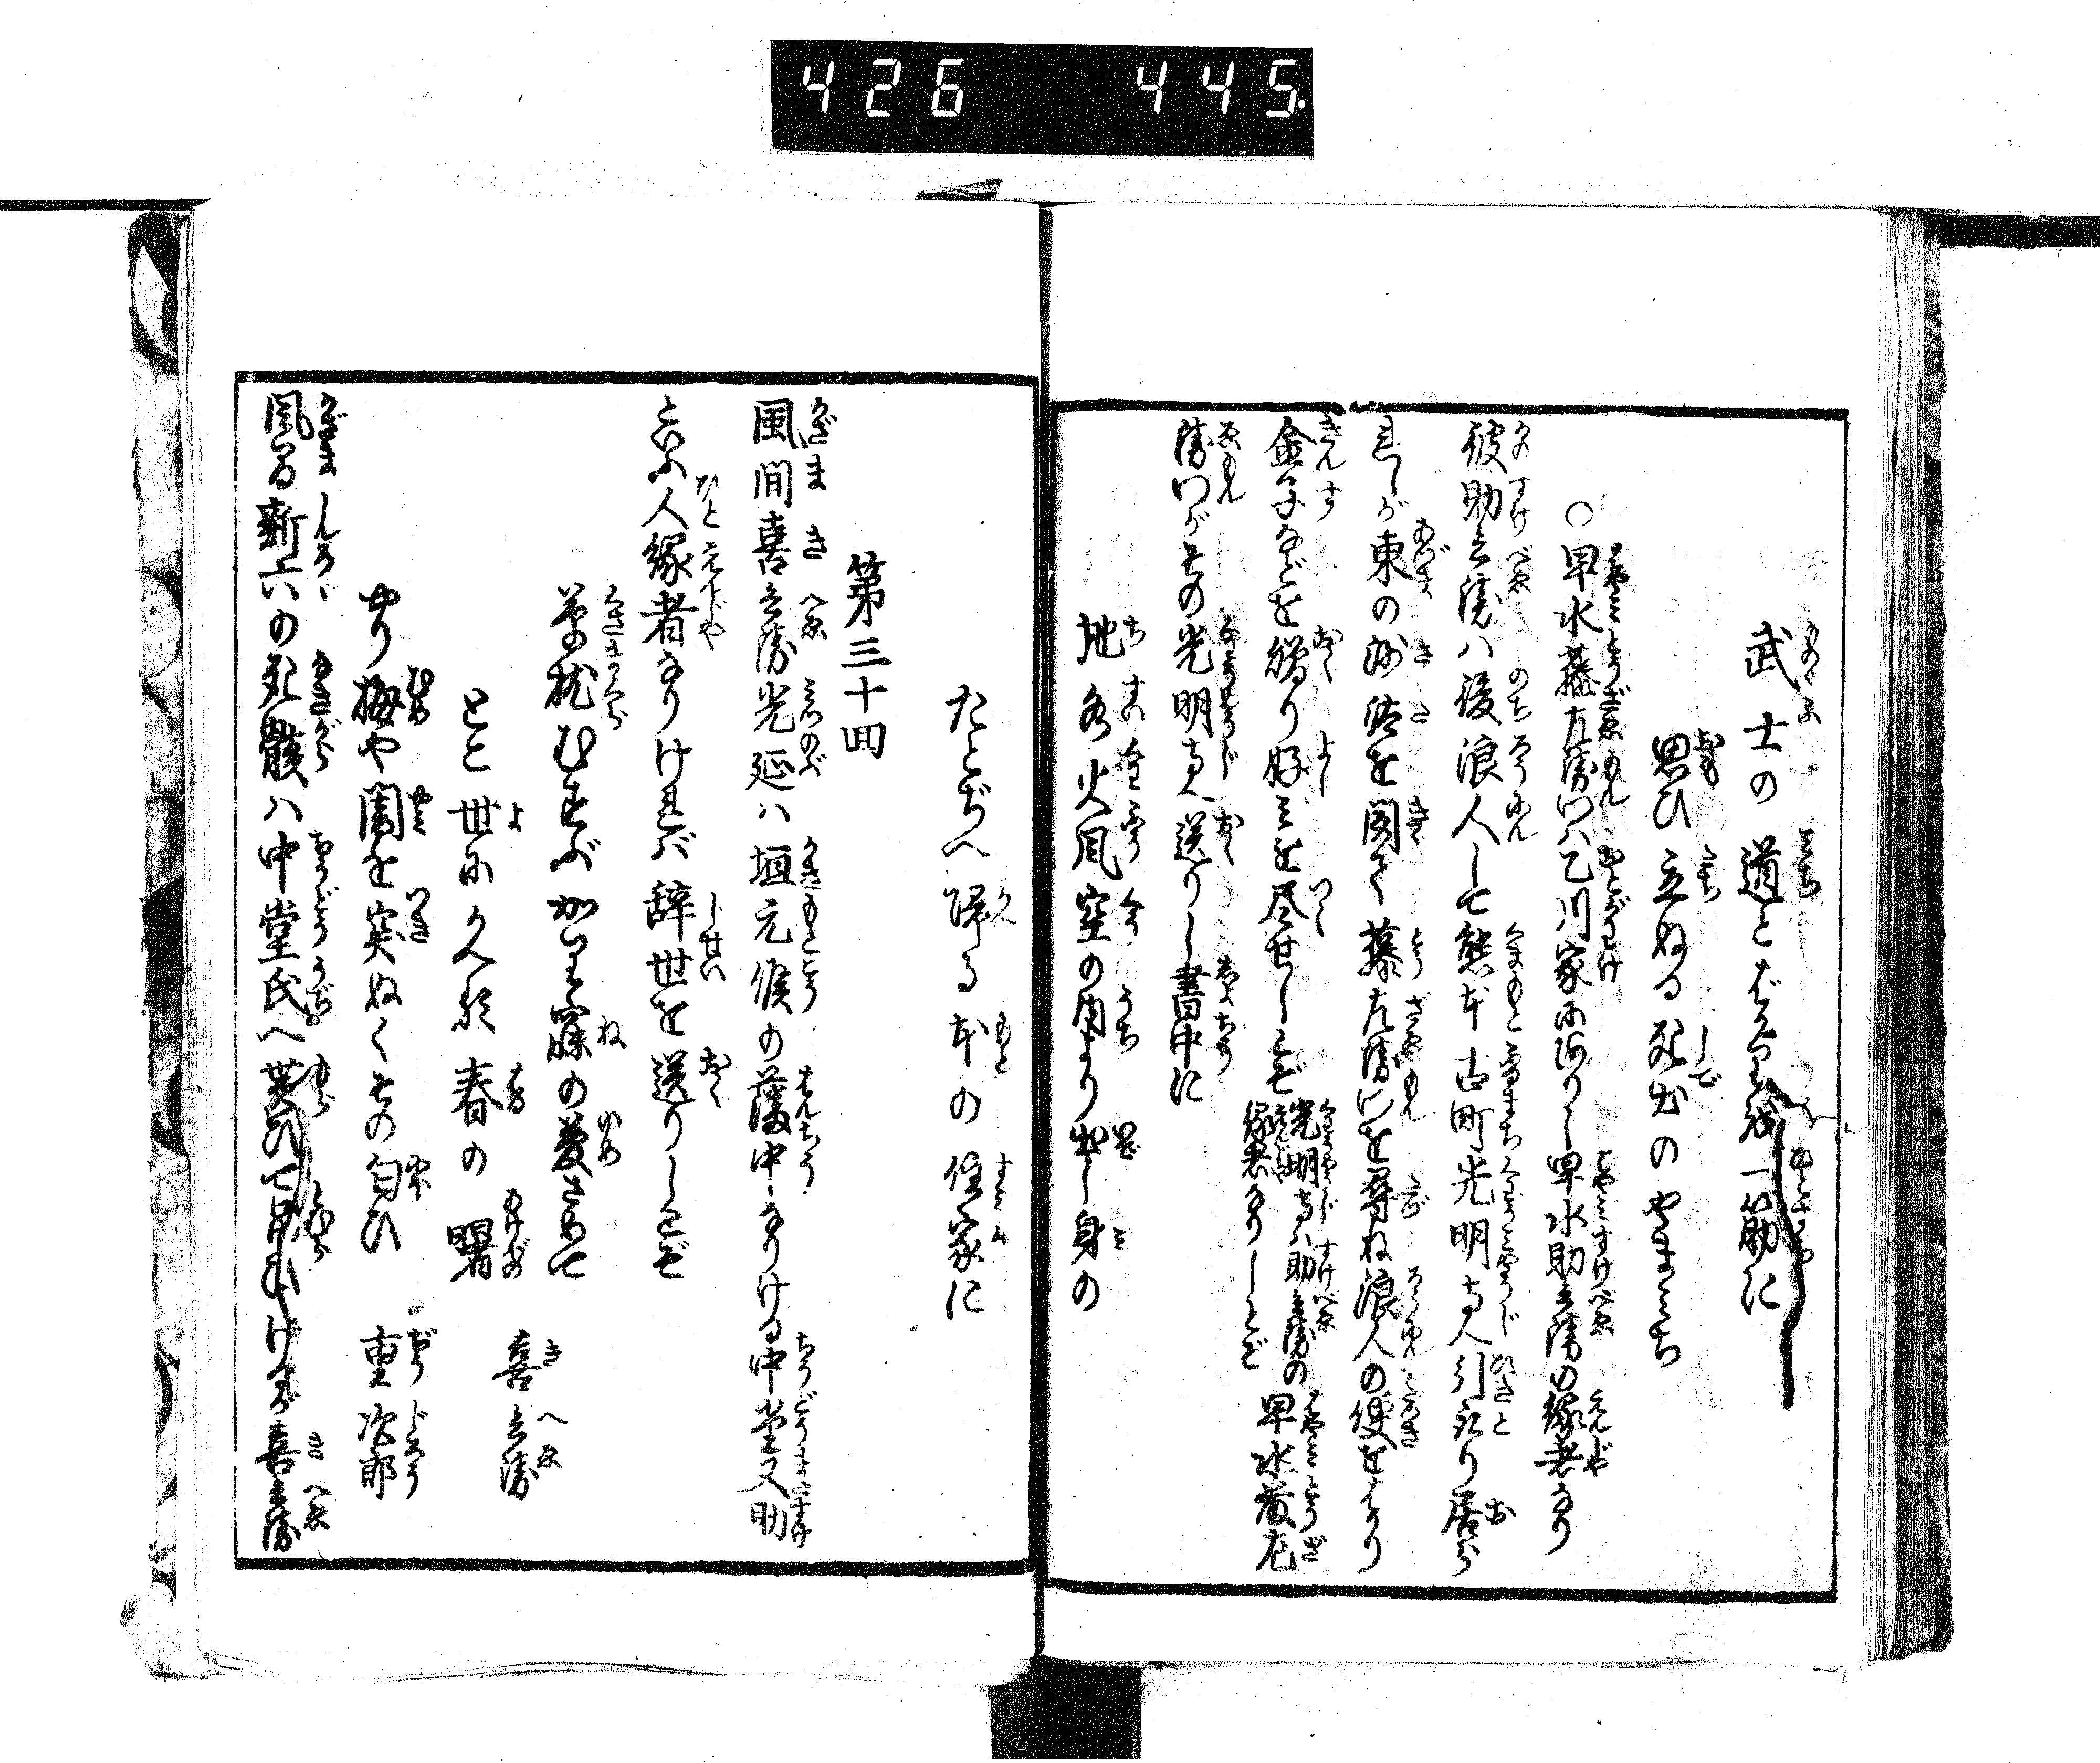 426 445.
武士の道とばかりを一筋に
思ひ立ぬる死出のやまみち
○早水藤左衛門ハ乙川家に在りし早水助兵衛の縁者なり
彼助兵衛ハ後浪人して熊本古町光明寺へ引取り居ら
れしが東の沙汰を聞て藤左衛門を尋ね浪人の便をはかり
金子などを贈り好みを尽せしとぞ
光明寺ハ助兵衛の
縁者なりしとぞ
早水藤左
衛門がその光明寺へ送りし書中に
地水火風空の内より出し身の
たどぢへ帰る本の住家に
第三十回
風間喜兵衛光延ハ垣元侯の藩中なりける中堂又助
といふ人縁者なりければ辞世を送りしとぞ
草枕むすぶかりま寐の夢さめて
とこ世にかへる春の曙
喜兵衛
やり梅や闇を突ぬくその匂ひ
重次郎
風間新六の死骸ハ中堂氏へ貰ひて葬りけるが喜兵衛